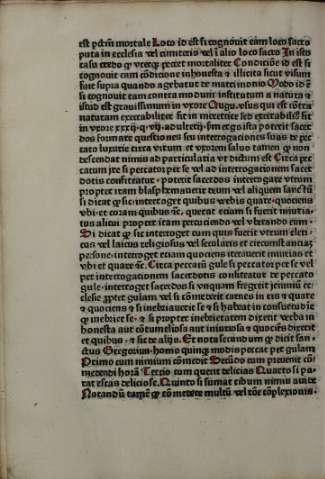 est pctm mortale Loco id est si cognouit eam loco sacro
puta in ecclesia vel cimiterio vel in alio loco sacro In isto
casu credo qp vterqz peccet mortaliter Condicioe id est si
cognouit eam cōdicione inhonesta & illicita sicut visum
fuit supra quando agebatur de matrimonio Modo id ē
si cognouit eam contra modum institutum a natura &
istud est grauissimum in vxore Augu. vsus qui est cōtra
naturam execrabiliter fit in meretrice sed execrabiliꝰ fit
in vxore xxxij. q. vij. adulterij. Sm ergo ista poterit sacer
dos formare questiones seu interrogaciones suas de pec
cato luxurie circa virum et vxorem saluo tamen qp non
descendat nimis ad particularia vt dictum est Circa pec
catum ire si peccator per se vel ad interrogacionem sacer
dotis confiteatur. poterit sacerdos interrogare vtrum
propter iram blasphemauerit deum vel aliquem sanctū
si dicat qp sic. interroget quibus verbis quare. quociens
vbi et coram quibus &c. querat etiam si fuerit iniuria
tus alicui propter iram percuciendo vel vberando eum.
Si dicat qp sic interroget eum quis fuerit vtrum cleri
cus vel laicus religiosus vel secularis et circumstancias
persone. interroget etiam quociens iterauerit iniurias et
vbi et quare &c. Circa peccatū gule si peccator per se vel
per interrogationem sacerdotis confiteatur de peccato
gule. interroget sacerdos si vnquam fregerit ieiuniū ec
clesie propter gulam vel si comederit carnes in eis & quare
& quociens & si inebriauerit se & si habeat in consuetudīe
qp inebriet se. & si propter inebrietatem dixerit verba in
honesta aut cōtumeliosa aut iniuriosa & quociens dixerit
et quibus. & sic de alijs. Et nota secundum qp dicit san-
ctus Gregorius. homo quinqz modis peccat per gulam
Primo cum nimium comedit Secūdo cum preuenit co
medendi horā Tercio cum querit delicias Quarto si pa
rat escas deliciose. Quinto si sumat cibum nimis auide
Notandū tamē qp comedere multū vel tm̄ cōplexionis.